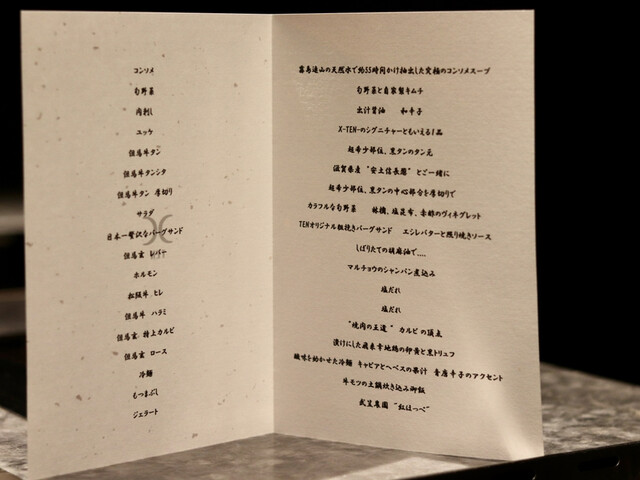 コンソメ
旬野菜
肉刺し
ユッケ
但馬牛タン
但馬牛タンシタ
但馬牛タン 厚切り
サラダ
日本一贅沢なバーグサンド
但馬玄 レバー
ホルモン
松阪牛 ヒレ
但馬牛 ハラミ
但馬玄 特上カルビ
但馬玄 ロース
冷麺
もつまぶし
ジェラート
霧島連山の天然水で約35時間かけ抽出した究極のコンソメスープ
旬野菜と自家製キムチ
出汁醤油 和辛子
X-TEN-のシグニチャーともいえる1品
超希少部位、黒タンのタン元
滋賀県産 "安土信長葱" とご一緒に
超希少部位、黒タンの中心部分を厚切りで
カラフルな旬野菜 林檎、塩昆布、赤酢のヴィネグレット
TENオリジナル粗挽きバーグサンド エシレバターと照り焼きソース
しぼりたての胡麻油で....
マルチョウのシャンパン煮込み
塩だれ
塩だれ
"焼肉の王道" カルビの頂点
漬けにした飛来幸地鶏の卵黄と黒トリュフ
酸味を効かせた冷麺 キャビアとヘベスの果汁 青唐辛子のアクセント
牛モツの土鍋炊き込み御飯
武笠農園 "紅ほっぺ"